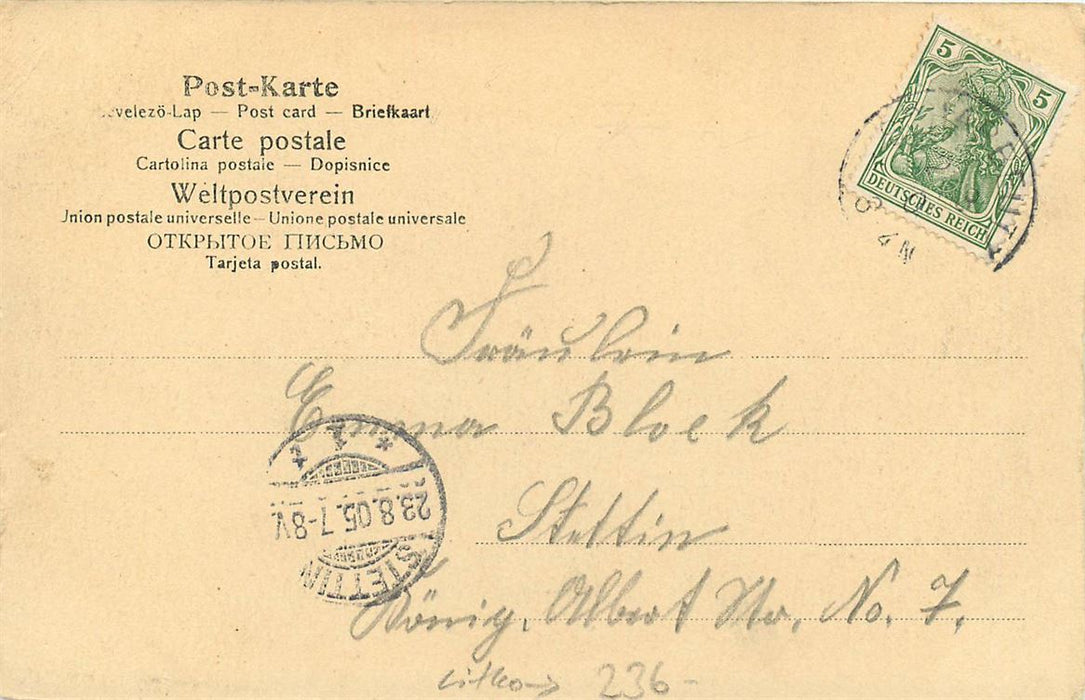 Post-Karte
velező-Lap — Post card — Briefkaart
Carte postale
Cartolina postale — Dopisnice
Weltpostverein
Union postale universelle – Unione postale universale
ОТКРЫТОЕ ПИСЬМО
Tarjeta postal.
5 5
DEUTSCHES REICH
4 N
Fräulein
Emma Block
Stettin
König. Albert Str. No. 7.
23.8.05. 7-8V.
STETTIN
1
236-